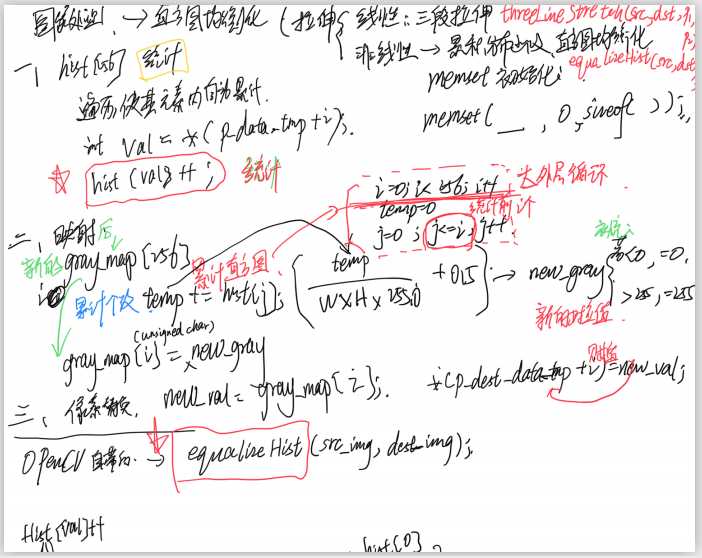 图像处理 → 直方图均衡化 (拉伸 { 线性: 三段拉伸 threeLineStretch(src, dst,
非线性 → 累积分布 直方图均衡化
equalizeHist(src, dst
一、 hist[256] 统计
memset 初始化:
遍历 使其元素内自动累计.
memset( __ , 0, sizeof( ));
int val = *(p_data_tmp+i);
hist[val]++; 统计
i=0; i<256; i++ 大外层循环.
temp=0
j=0; j<=i; j++
二、映射后
新的 gray_map[256]
累计直方图
累计个数 temp += hist[j];
( temp / W×H × 255.0 + 0.5 ) → new_gray { <0, =0.
>255, =255
新的灰度值.
(unsigned char)
gray_map[i] = new_gray
new_val = gray_map[i];
*(p_dest_data_tmp+i)=new_val;
赋值
三、像素替换.
OpenCV 自带的. → equalizeHist(src_img, dest_img);
Hist[val]++
hist[0]